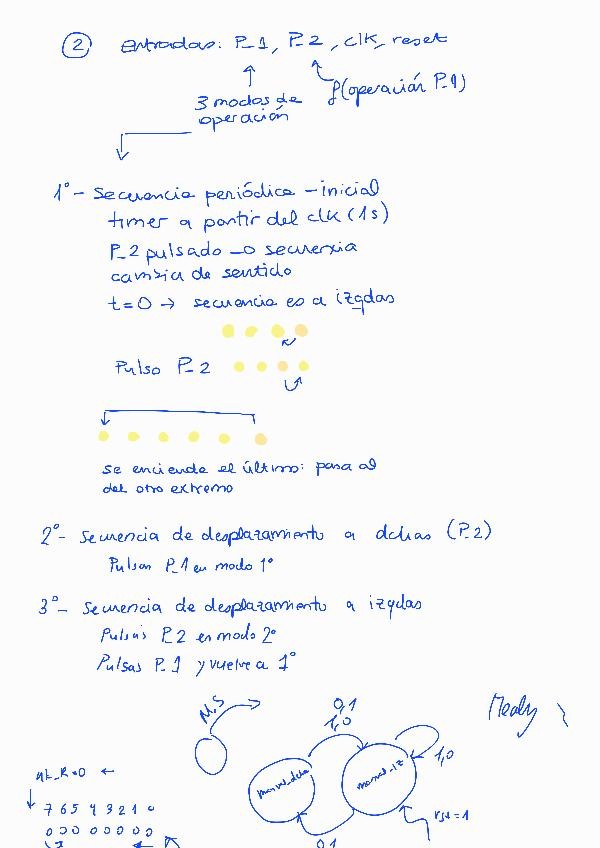 2 entradas: P_1, P_2, clk, reset
3 modos de
operación
f(operación P_1)
1º - Secuencia periódica - inicial
timer a partir del clk (1s)
P_2 pulsado → secuencia
cambia de sentido
t=0 → secuencia es a izqdas
Pulso P_2
se enciende el último: pasa al
del otro extremo
2º - Secuencia de desplazamiento a dchas (P_2)
Pulsas P_1 en modo 1º
3º - Secuencia de desplazamiento a izqdas
Pulsas P_2 en modo 2º
Pulsas P_1 y vuelve a 1º
N,S
0,1
1,0
Mealy
manual_dcha
manual_iz
1,0
←
7 6 5 4 3 2 1 0
0 0 0 0 0 0 0 0
rst=1
0,1